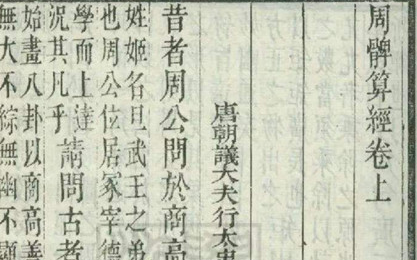 周髀算經卷上
唐朝議大夫行太史
昔者周公問於商高
姓姬名旦武王之弟
也周公位居冢宰德
學而上達
請問古者
況其凡乎
始畫八卦以商高善
無大不綜無幽不顯